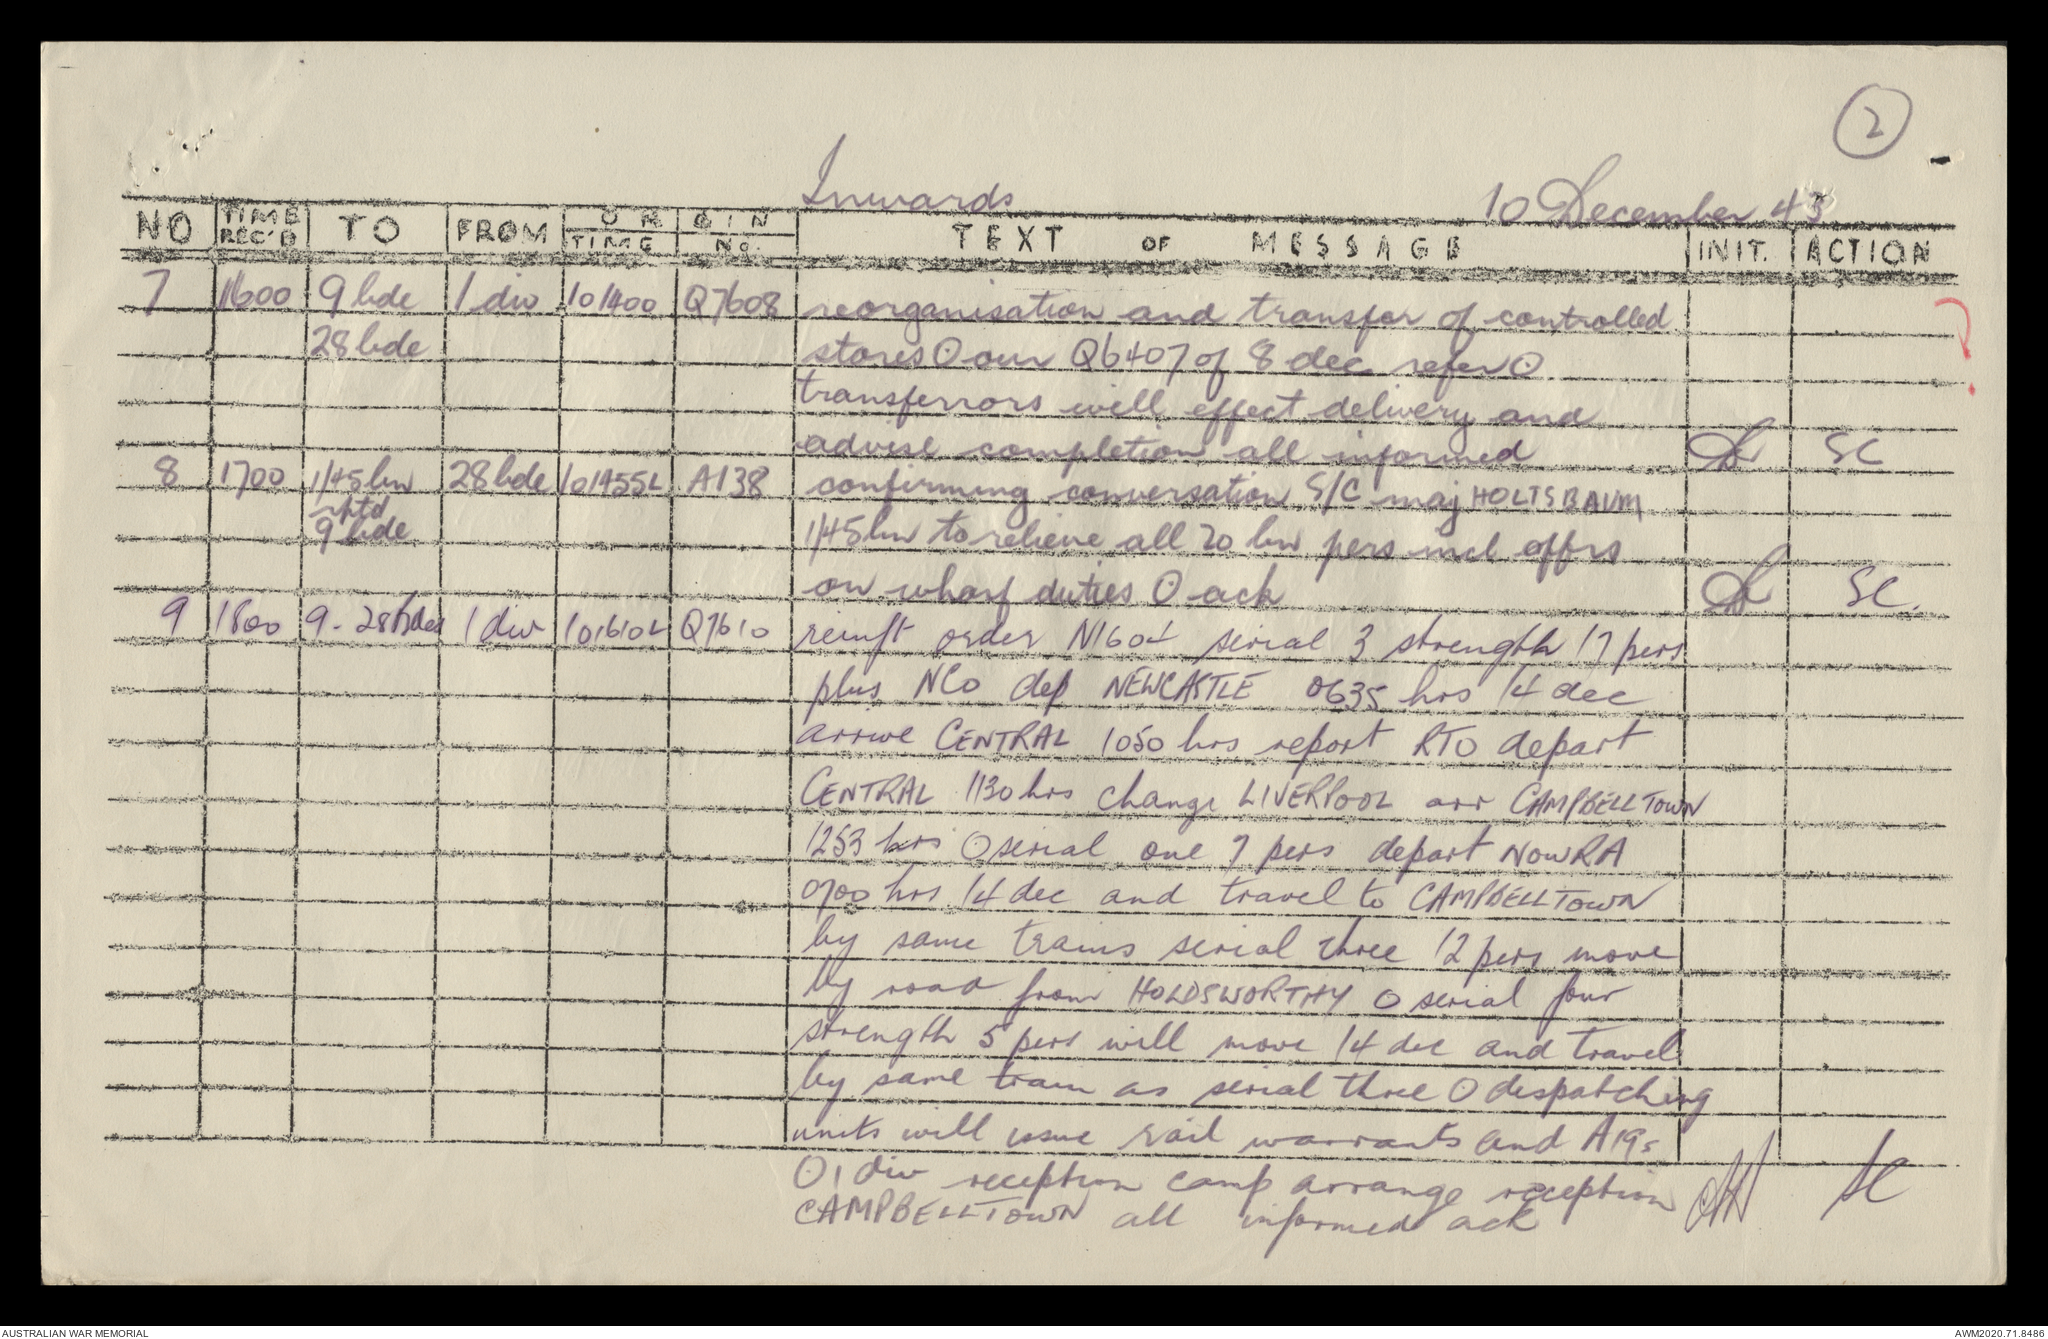 2
Inwards 10 December 43
NO TIME REC'D TO FROM ORIGIN TIME No. TEXT OF MESSAGE INIT. ACTION
7 1600 9 bde 1 div 101400 Q7608 reorganisation and transfer of controlled
28 bde stores O our Q6407 of 8 dec refer O
transferrors will effect delivery and
advise completion all informed SC
8 1700 1/45 bn 28 bde 101455L A138 confirming conversation S/C maj HOLTSBAUM
rptd
9 bde 1/45 bn to relieve all 20 bn pers incl offrs
on wharf duties O ack SC.
9 1800 9 - 28 bdes 1 div 101610L Q7610 reinft order N1604 serial 3 strength 17 pers
plus NCO dep NEWCASTLE 0635 hrs 14 dec
arrive CENTRAL 1050 hrs report RTO depart
CENTRAL 1130 hrs change LIVERPOOL arr CAMPBELLTOWN
1253 hrs O serial one 7 pers depart NOWRA
0700 hrs 14 dec and travel to CAMPBELLTOWN
by same trains serial three 12 pers move
by road from HOLDSWORTHY O serial four
strength 5 pers will move 14 dec and travel
by same train as serial three O despatching
units will issue rail warrants and A19s
O 1 div reception camp arrange reception SC
CAMPBELLTOWN all informed ack
?
AUSTRALIAN WAR MEMORIAL AWM2020.71.8486